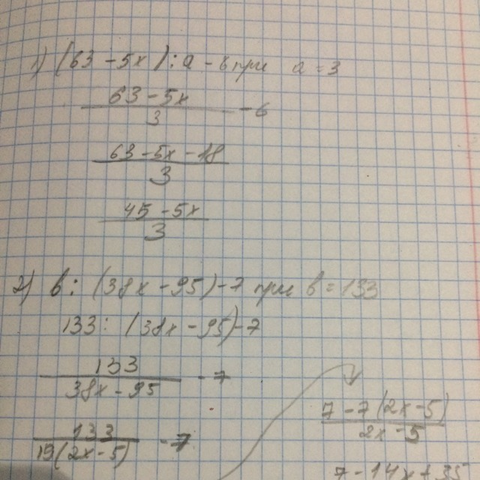 1) (63 - 5x) : a - 6 при a = 3
63 - 5x / 3 - 6
63 - 5x - 18 / 3
45 - 5x / 3
2) b : (38x - 95) - 7 при b = 133
133 : (38x - 95) - 7
133 / 38x - 95 - 7
133 / 19(2x - 5) - 7
7 - 7(2x - 5) / 2x - 5
7 - 14x + 35